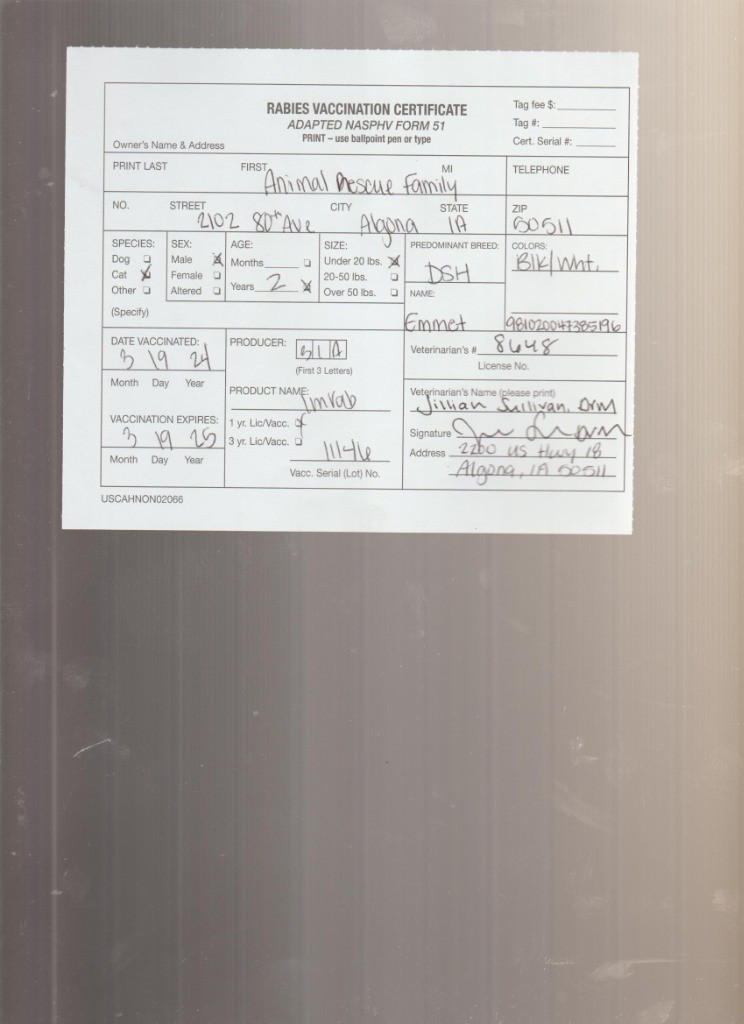 RABIES VACCINATION CERTIFICATE
ADAPTED NASPHV FORM 51
PRINT – use ballpoint pen or type
Tag fee $:
Tag #:
Cert. Serial #:
Owner's Name & Address
PRINT LAST FIRST MI TELEPHONE
Animal Rescue Family
NO. STREET CITY STATE ZIP
2102 80th Ave Algona IA 50511
SPECIES: SEX: AGE: SIZE: PREDOMINANT BREED: COLORS:
Dog Male Months Under 20 lbs. DSH Blk/Wht.
Cat Female 20-50 lbs.
Other Altered Years 2 Over 50 lbs. NAME:
(Specify)
Emmet 981020047385196
DATE VACCINATED: PRODUCER: Veterinarian's # 8648
3 19 24 License No.
(First 3 Letters)
Month Day Year
PRODUCT NAME: Imrab
Veterinarian's Name (please print)
Jillian Sullivan, DVM
VACCINATION EXPIRES: 1 yr. Lic/Vacc. Signature
3 19 25 3 yr. Lic/Vacc. Address 2200 US Hwy 18
11146 Algona, IA 50511
Month Day Year Vacc. Serial (Lot) No.
USCAHNON02066